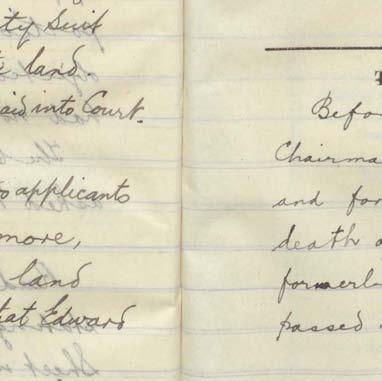 ity Suit
land
aid into Court.
to applicants
more,
land
that Edward
T
Befo
Chairma
and for
death a
formerl
passed